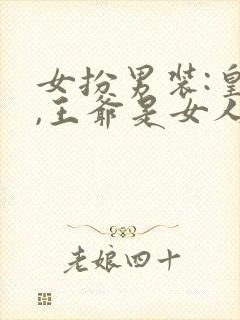 女扮男装:皇
,王爷是女人
老娘四十